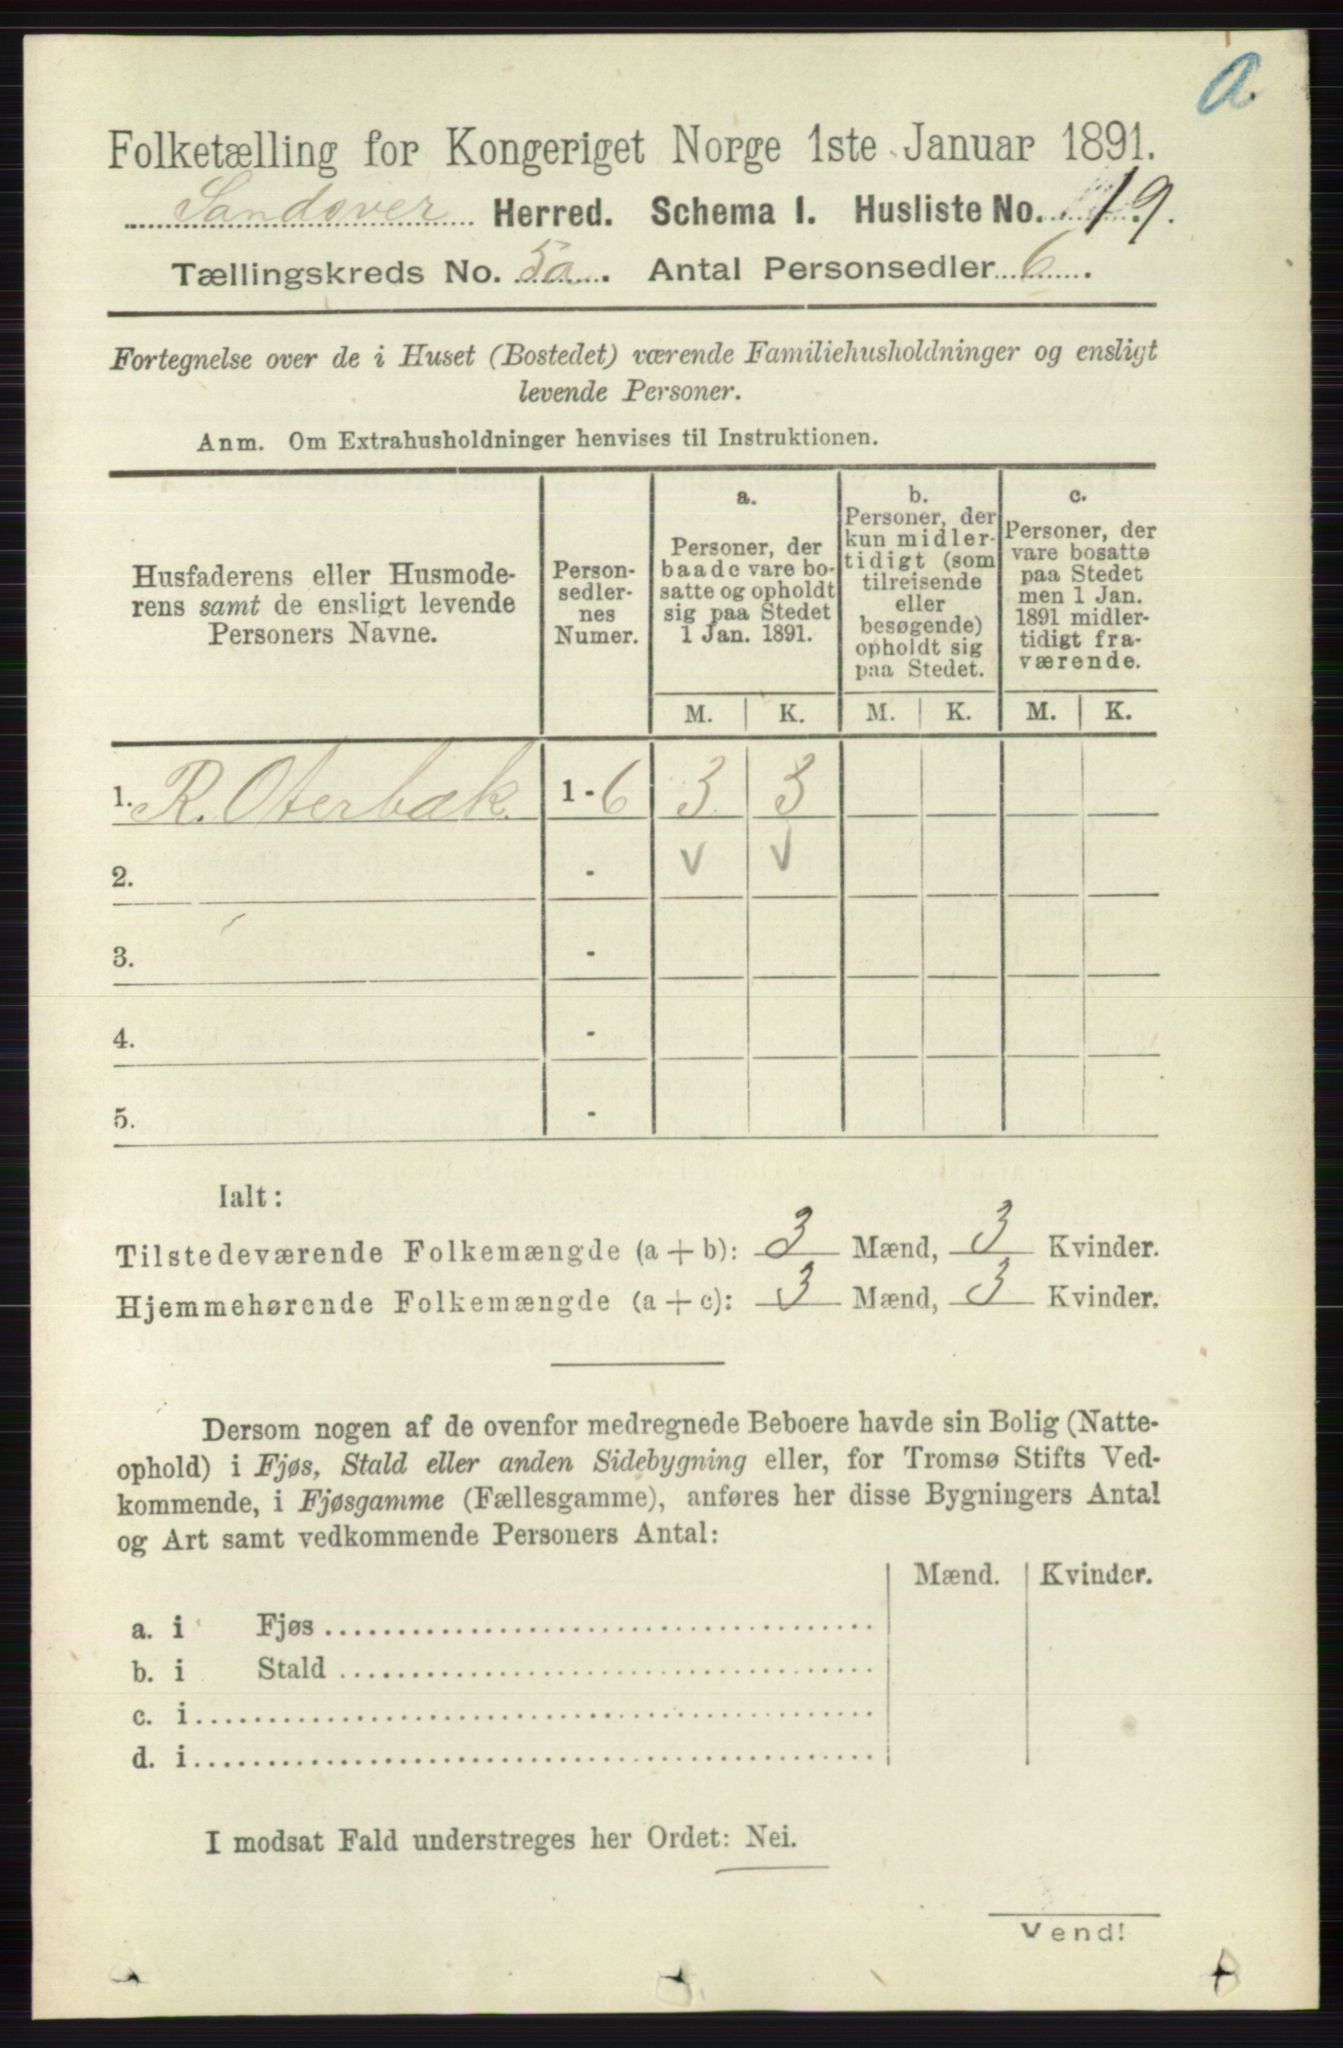 a.
Folketælling for Kongeriget Norge 1ste Januar 1891.
Sandøver Herred. Schema I. Husliste No. 19.
Tællingskreds No. 5a. Antal Personsedler 6.
Fortegnelse over de i Huset (Bostedet) værende Familiehusholdninger og ensligt
levende Personer.
Anm. Om Extrahusholdninger henvises til Instruktionen.
Husfaderens eller Husmode-
rens samt de ensligt levende
Personers Navne.
Person-
sedler-
nes
Numer.
a.
Personer, der
baade vare bo-
satte og opholdt
sig paa Stedet
1 Jan. 1891.
b.
Personer, der
kun midler-
tidigt (som
tilreisende
eller
besøgende)
opholdt sig
paa Stedet.
c.
Personer, der
vare bosatte
paa Stedet
men 1 Jan.
1891 midler-
tidigt fra-
værende.
M. K. M. K. M. K.
1. R. Oterbæk. 1-6 3 3
2. - v v
3. -
4. -
5. -
Ialt:
Tilstedeværende Folkemængde (a + b): 3 Mænd, 3 Kvinder.
Hjemmehørende Folkemængde (a + c): 3 Mænd, 3 Kvinder.
Dersom nogen af de ovenfor medregnede Beboere havde sin Bolig (Natte-
ophold) i Fjøs, Stald eller anden Sidebygning eller, for Tromsø Stifts Ved-
kommende, i Fjøsgamme (Fællesgamme), anføres her disse Bygningers Antal
og Art samt vedkommende Personers Antal:
Mænd. Kvinder.
a. i Fjøs
b. i Stald
c. i
d. i
I modsat Fald understreges her Ordet: Nei.
Vend!